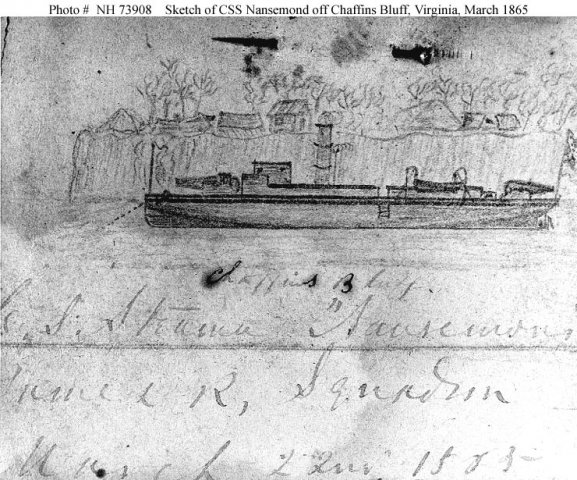 Photo # NH 73908 Sketch of CSS Nansemond off Chaffins Bluff, Virginia, March 1865
Chaffins Bluff
C. S. Steamer "Nansemond
James R, Squadron
March 22nd 1865